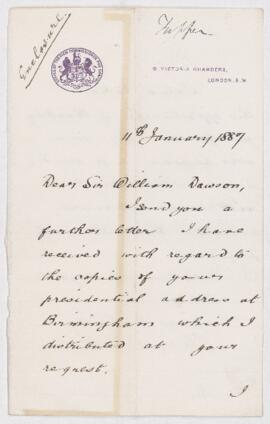 Enclosure
Tupper
9 VICTORIA CHAMBERS,
LONDON, S.W.
11th January 1887
Dear Sir William Dawson,
I send you a
further letter I have
received with regard to
the copies of your
presidential address at
Birmingham which I
distributed at your
request.
I